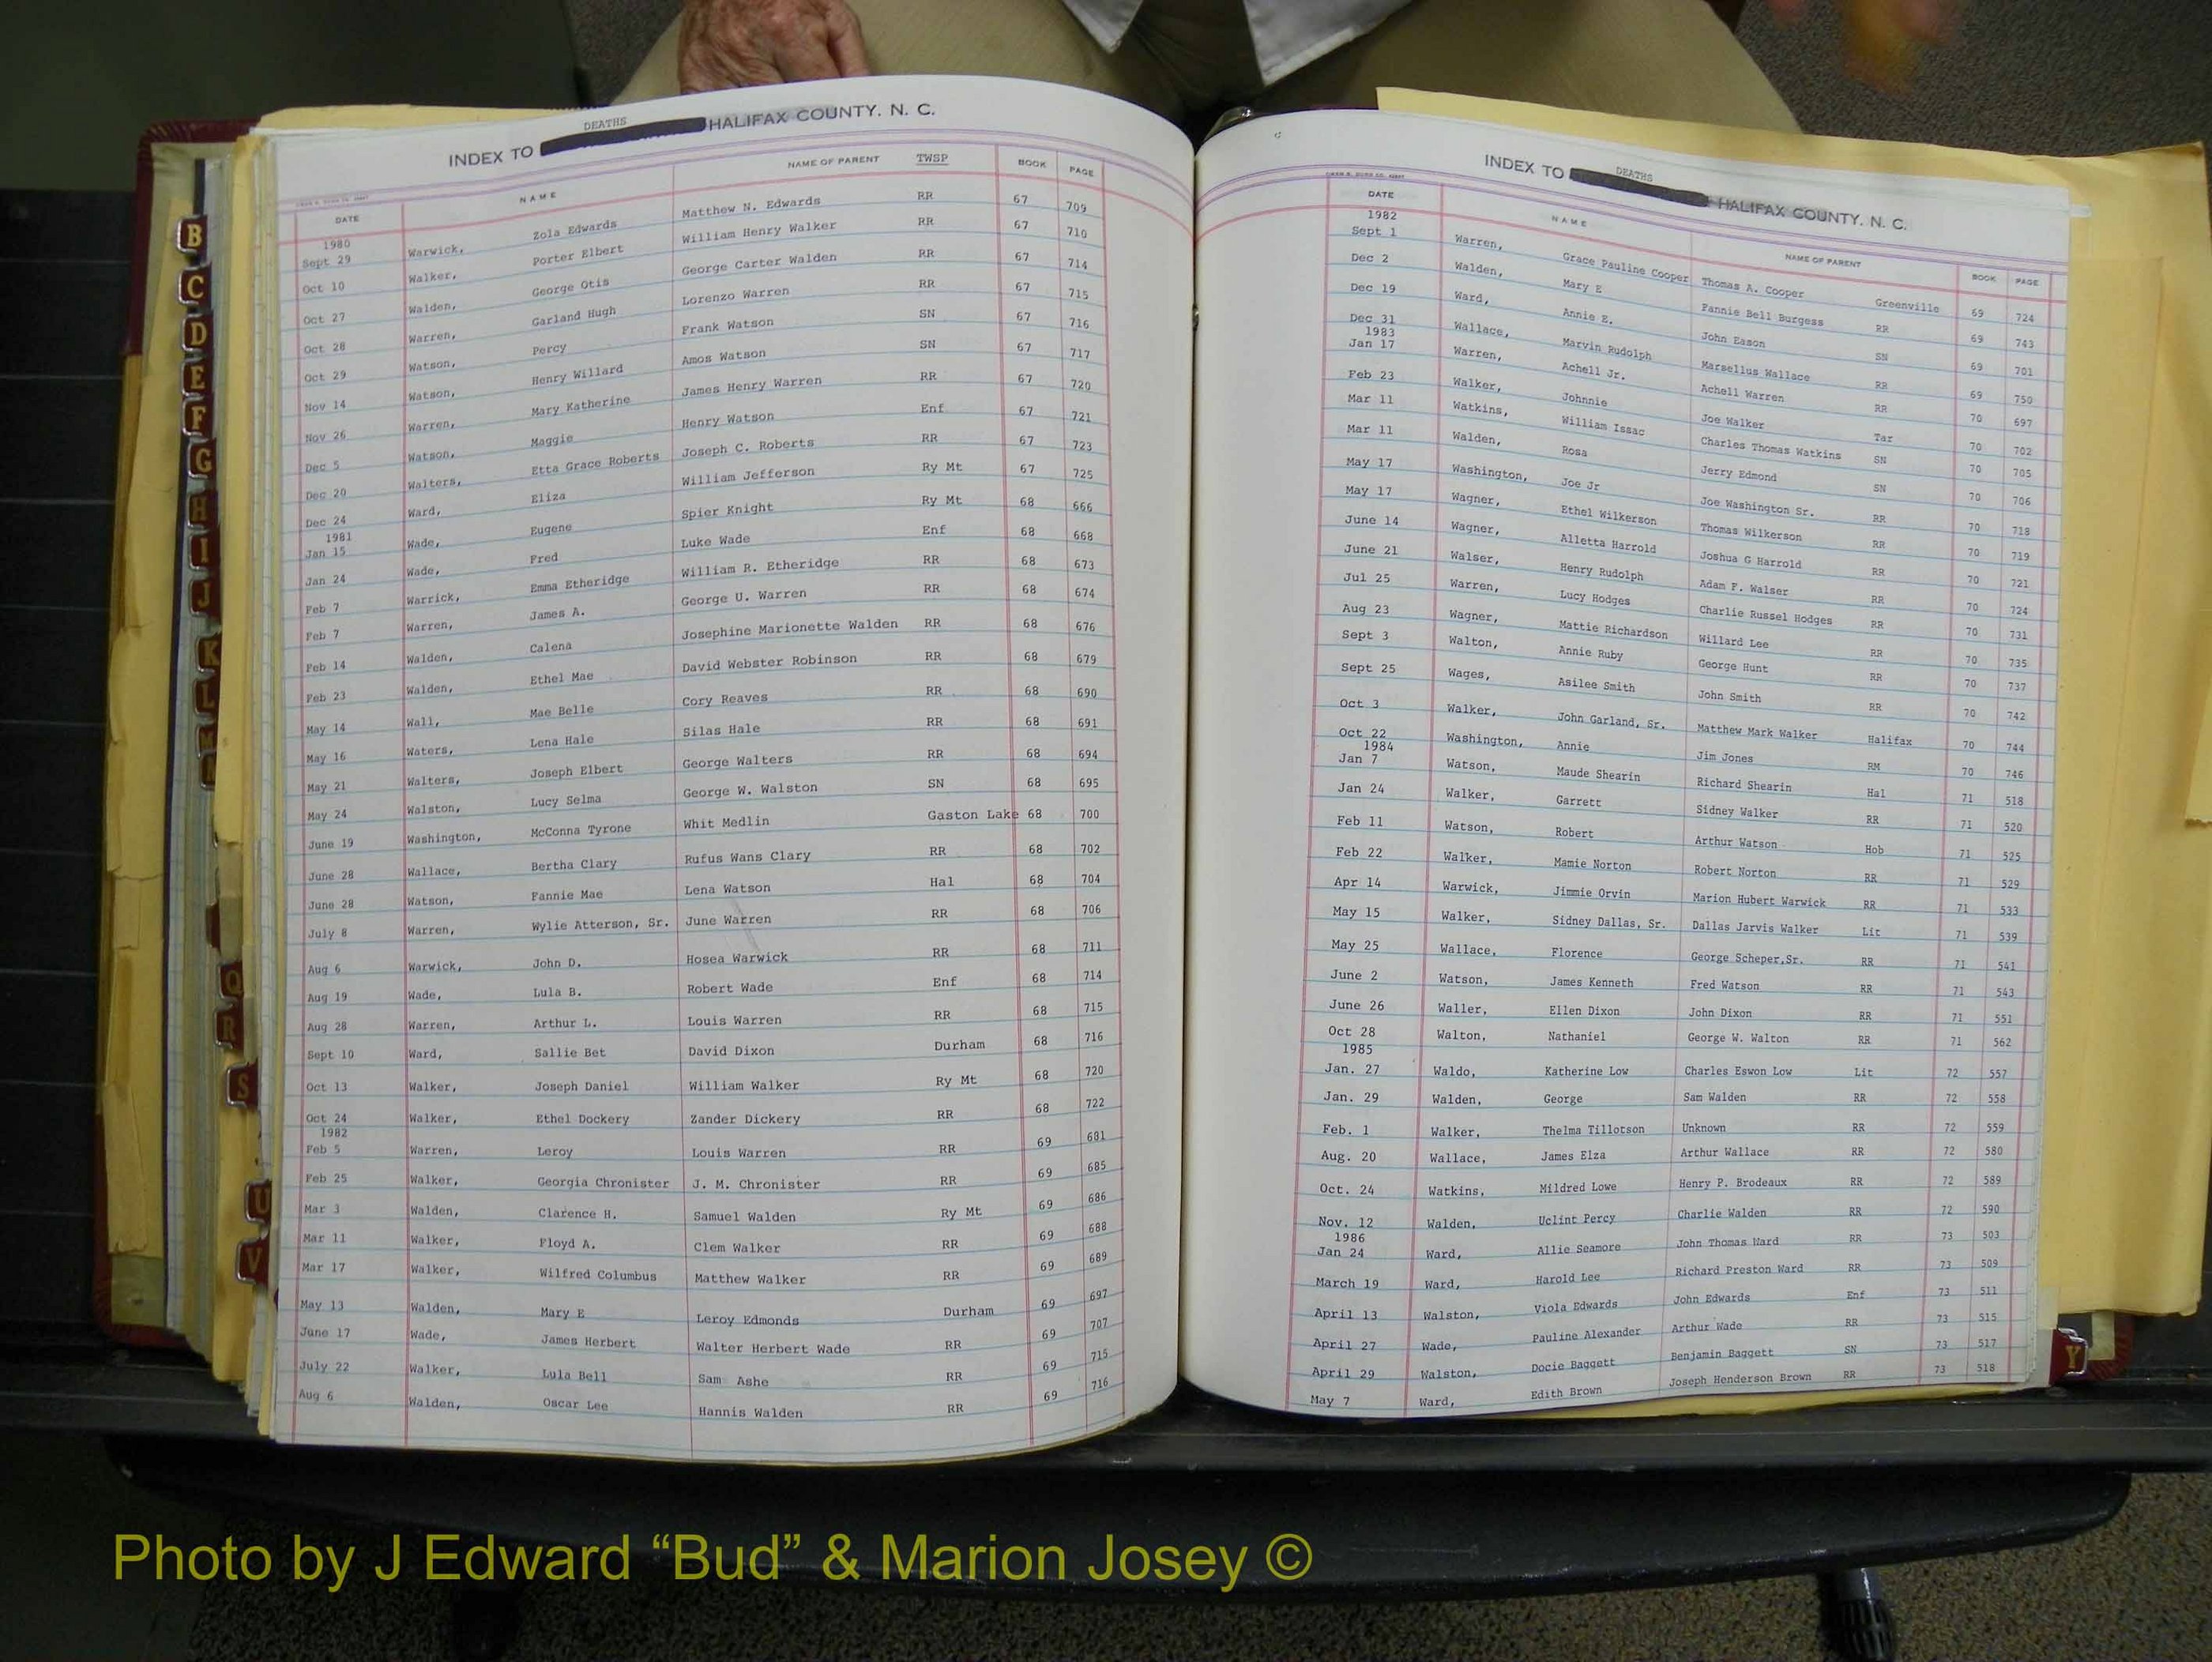 INDEX TO DEATHS HALIFAX COUNTY. N. C.
DATE NAME NAME OF PARENT TWSP BOOK PAGE
1980
Sept 29 Warwick, Zola Edwards Matthew N. Edwards RR 67 709
Oct 10 Walker, Porter Elbert William Henry Walker RR 67 710
Oct 27 Walden, George Otis George Carter Walden RR 67 714
Oct 28 Warren, Garland Hugh Lorenzo Warren RR 67 715
Oct 29 Watson, Percy Frank Watson SN 67 716
Nov 14 Watson, Henry Willard Amos Watson SN 67 717
Nov 26 Warren, Mary Katherine James Henry Warren RR 67 720
Dec 5 Watson, Maggie Henry Watson Enf 67 721
Dec 20 Walters, Etta Grace Roberts Joseph C. Roberts RR 67 723
Dec 24 Ward, Eliza William Jefferson Ry Mt 67 725
1981
Jan 15 Wade, Eugene Spier Knight Ry Mt 68 666
Jan 24 Wade, Fred Luke Wade Enf 68 668
Feb 7 Warrick, Emma Etheridge William R. Etheridge RR 68 673
Feb 7 Warren, James A. George U. Warren RR 68 674
Feb 14 Walden, Calena Josephine Marionette Walden RR 68 676
Feb 23 Walden, Ethel Mae David Webster Robinson RR 68 679
May 14 Wall, Mae Belle Cory Reaves RR 68 690
May 16 Waters, Lena Hale Silas Hale RR 68 691
May 21 Walters, Joseph Elbert George Walters RR 68 694
May 24 Walston, Lucy Selma George W. Walston SN 68 695
June 19 Washington, McConna Tyrone Whit Medlin Gaston Lake 68 700
June 28 Wallace, Bertha Clary Rufus Wans Clary RR 68 702
June 28 Watson, Fannie Mae Lena Watson Hal 68 704
July 8 Warren, Wylie Atterson, Sr. June Warren RR 68 706
Aug 6 Warwick, John D. Hosea Warwick RR 68 711
Aug 19 Wade, Lula B. Robert Wade Enf 68 714
Aug 28 Warren, Arthur L. Louis Warren RR 68 715
Sept 10 Ward, Sallie Bet David Dixon Durham 68 716
Oct 13 Walker, Joseph Daniel William Walker Ry Mt 68 720
Oct 24 Walker, Ethel Dockery Zander Dickery RR 68 722
1982
Feb 5 Warren, Leroy Louis Warren RR 69 681
Feb 25 Walker, Georgia Chronister J. M. Chronister RR 69 685
Mar 3 Walden, Clarence H. Samuel Walden Ry Mt 69 686
Mar 11 Walker, Floyd A. Clem Walker RR 69 688
Mar 17 Walker, Wilfred Columbus Matthew Walker RR 69 689
May 13 Walden, Mary E Leroy Edmonds Durham 69 697
June 17 Wade, James Herbert Walter Herbert Wade RR 69 707
July 22 Walker, Lula Bell Sam Ashe RR 69 715
Aug 6 Walden, Oscar Lee Hannis Walden RR 69 716
INDEX TO DEATHS HALIFAX COUNTY. N. C.
DATE NAME NAME OF PARENT BOOK PAGE
1982
Sept 1 Warren, Grace Pauline Cooper Thomas A. Cooper Greenville 69 724
Dec 2 Walden, Mary E Fannie Bell Burgess RR 69 743
Dec 19 Ward, Annie E. John Eason SN 69 701
Dec 31 Wallace, Marvin Rudolph Marsellus Wallace RR 69 750
1983
Jan 17 Warren, Achell Jr. Achell Warren RR 70 697
Feb 23 Walker, Johnnie Joe Walker Tar 70 702
Mar 11 Watkins, William Issac Charles Thomas Watkins SN 70 705
Mar 11 Walden, Rosa Jerry Edmond SN 70 706
May 17 Washington, Joe Jr Joe Washington Sr. RR 70 718
May 17 Wagner, Ethel Wilkerson Thomas Wilkerson RR 70 719
June 14 Wagner, Alletta Harrold Joshua G Harrold RR 70 721
June 21 Walser, Henry Rudolph Adam F. Walser RR 70 724
Jul 25 Warren, Lucy Hodges Charlie Russel Hodges RR 70 731
Aug 23 Wagner, Mattie Richardson Willard Lee RR 70 735
Sept 3 Walton, Annie Ruby George Hunt RR 70 737
Sept 25 Wages, Asilee Smith John Smith RR 70 742
Oct 3 Walker, John Garland, Sr. Matthew Mark Walker Halifax 70 744
Oct 22 Washington, Annie Jim Jones RM 70 746
1984
Jan 7 Watson, Maude Shearin Richard Shearin Hal 71 518
Jan 24 Walker, Garrett Sidney Walker RR 71 520
Feb 11 Watson, Robert Arthur Watson Hob 71 525
Feb 22 Walker, Mamie Norton Robert Norton RR 71 529
Apr 14 Warwick, Jimmie Orvin Marion Hubert Warwick RR 71 533
May 15 Walker, Sidney Dallas, Sr. Dallas Jarvis Walker Lit 71 539
May 25 Wallace, Florence George Scheper,Sr. RR 71 541
June 2 Watson, James Kenneth Fred Watson RR 71 543
June 26 Waller, Ellen Dixon John Dixon RR 71 551
Oct 28 Walton, Nathaniel George W. Walton RR 71 562
1985
Jan. 27 Waldo, Katherine Low Charles Eswon Low Lit 72 557
Jan. 29 Walden, George Sam Walden RR 72 558
Feb. 1 Walker, Thelma Tillotson Unknown RR 72 559
Aug. 20 Wallace, James Elza Arthur Wallace RR 72 580
Oct. 24 Watkins, Mildred Lowe Henry P. Brodeaux RR 72 589
Nov. 12 Walden, Uclint Percy Charlie Walden RR 72 590
1986
Jan 24 Ward, Allie Seamore John Thomas Ward RR 73 503
March 19 Ward, Harold Lee Richard Preston Ward RR 73 509
April 13 Walston, Viola Edwards John Edwards Enf 73 511
April 27 Wade, Pauline Alexander Arthur Wade RR 73 515
April 29 Walston, Docie Baggett Benjamin Baggett SN 73 517
May 7 Ward, Edith Brown Joseph Henderson Brown RR 73 518
B
C
D
E
F
G
H
I
J
K
L
M
N
Q
R
S
U
V
Y
Photo by J Edward “Bud” & Marion Josey ©